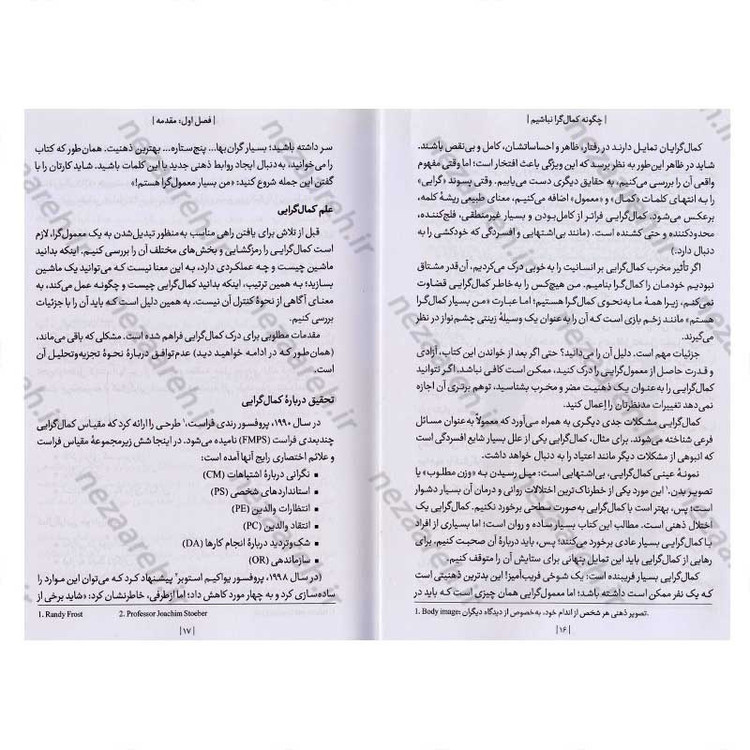 | چگونه کمال‌گرا نباشیم |
کمال‌گرایان تمایل دارند در رفتار، ظاهر و احساساتشان، کامل و بی‌نقص باشند.
شاید در ظاهر این‌طور به نظر برسد که این ویژگی باعث افتخار است؛ اما وقتی مفهوم
واقعی آن را بررسی می‌کنیم، به حقایق دیگری دست می‌یابیم. وقتی پسوند «گرایی»
را به انتهای کلمات «کمال» و «معمول» اضافه می‌کنیم، معنای طبیعی ریشهٔ کلمه،
برعکس می‌شود. کمال‌گرایی فراتر از کامل‌بودن و بسیار غیرمنطقی، فلج‌کننده،
محدودکننده و حتی کشنده است. (مانند بی‌اشتهایی و افسردگی که خودکشی را به
دنبال دارد.)
اگر تأثیر مخرب کمال‌گرایی بر انسانیت را به خوبی درک می‌کردیم، آن‌قدر مشتاق
نبودیم خودمان را کمال‌گرا بنامیم. من هیچ‌کس را به خاطر کمال‌گرایی قضاوت
نمی‌کنم، زیرا همهٔ ما به‌نحوی کمال‌گرا هستیم؛ اما عبارت «من بسیار کمال‌گرا
هستم» مانند زخم بازی است که آن را به‌عنوان یک وسیلهٔ زینتی چشم‌نواز در نظر
می‌گیرند.
جزئیات مهم است. دلیل آن را می‌دانید؟ حتی اگر بعد از خواندن این کتاب، آزادی
و قدرت حاصل از معمول‌گرایی را درک کنید، ممکن است کافی نباشد. اگر نتوانید
کمال‌گرایی را به‌عنوان یک ذهنیت مضر و مخرب بشناسید، توهم برتری آن اجازه
نمی‌دهد تغییرات مدنظرتان را اِعمال کنید.
کمال‌گرایی مشکلات جدی دیگری به همراه می‌آورد که معمولاً به‌عنوان مسائل
فرعی شناخته می‌شوند. برای مثال، کمال‌گرایی یکی از علل بسیار شایع افسردگی است
که انبوهی از مشکلات دیگر مانند اعتیاد را به دنبال خواهد داشت.
نمونهٔ عینی کمال‌گرایی، بی‌اشتهایی است: میل رسیدن به «وزن مطلوب» یا
تصویر بدن.۱ این مورد یکی از خطرناک‌ترین اختلالات روانی و درمان آن بسیار دشوار
است؛ پس، بهتر است با کمال‌گرایی به‌صورت سطحی برخورد نکنیم. کمال‌گرایی یک
اختلال ذهنی است. مطالب این کتاب بسیار ساده و روان است؛ اما بسیاری از افراد
با کمال‌گرایی بسیار عادی برخورد می‌کنند؛ پس، باید دربارهٔ آن صحبت کنیم. برای
رهایی از کمال‌گرایی باید این تمایل پنهانی برای ستایش آن را متوقف کنیم.
کمال‌گرایی بسیار فریبنده است: یک شوخی فریب‌آمیز! این بدترین ذهنیتی است
که یک نفر ممکن است داشته باشد؛ اما معمول‌گرایی همان چیزی است که باید در
1. Body image: تصویر ذهنی هر شخص از اندام خود، به‌خصوص از دیدگاه دیگران.
| ۱۶ |
| فصل اول: مقدمه |
سر داشته باشید؛ بسیار گران‌بها... پنج‌ستاره... بهترین ذهنیت. همان‌طور که کتاب
را می‌خوانید، به‌دنبال ایجاد روابط ذهنی جدید با این کلمات باشید. شاید کارتان را با
گفتن این جمله شروع کنید: «من بسیار معمول‌گرا هستم!»
علم کمال‌گرایی
قبل از تلاش برای یافتن راهی مناسب به‌منظور تبدیل‌شدن به یک معمول‌گرا، لازم
است کمال‌گرایی را رمزگشایی و بخش‌های مختلف آن را بررسی کنیم. اینکه بدانید
ماشین چیست و چه عملکردی دارد، به این معنا نیست که می‌توانید یک ماشین
بسازید؛ به همین ترتیب، اینکه بدانید کمال‌گرایی چیست و چگونه عمل می‌کند، به
معنای آگاهی از نحوهٔ کنترل آن نیست. به همین دلیل است که باید آن را با جزئیات
بررسی کنیم.
مقدمات مطلوبی برای درک کمال‌گرایی فراهم شده است. مشکلی که باقی می‌ماند،
(همان‌طور که در ادامه خواهید دید) عدم‌توافق دربارهٔ نحوهٔ تجزیه‌وتحلیل آن
است.
تحقیق دربارهٔ کمال‌گرایی
در سال ۱۹۹۰، پروفسور رندی فراست،۱ طرحی را ارائه کرد که مقیاس کمال‌گرایی
چندبعدی فراست (FMPS) نامیده می‌شود. در اینجا شش زیرمجموعهٔ مقیاس فراست
و علائم اختصاری رایج آنها آمده است:
▪ نگرانی دربارهٔ اشتباهات (CM)
▪ استانداردهای شخصی (PS)
▪ انتظارات والدین (PE)
▪ انتقاد والدین (PC)
▪ شک‌وتردید دربارهٔ انجام کارها (DA)
▪ سازماندهی (OR)
(در سال ۱۹۹۸، پروفسور یواکیم استوبر۲ پیشنهاد کرد که می‌توان این موارد را
ساده‌سازی کرد و به چهار مورد کاهش داد؛ اما ازطرفی، خاطرنشان کرد: «شاید برخی از
1. Randy Frost 2. Professor Joachim Stoeber
| ۱۷ |
nezaareh.ir